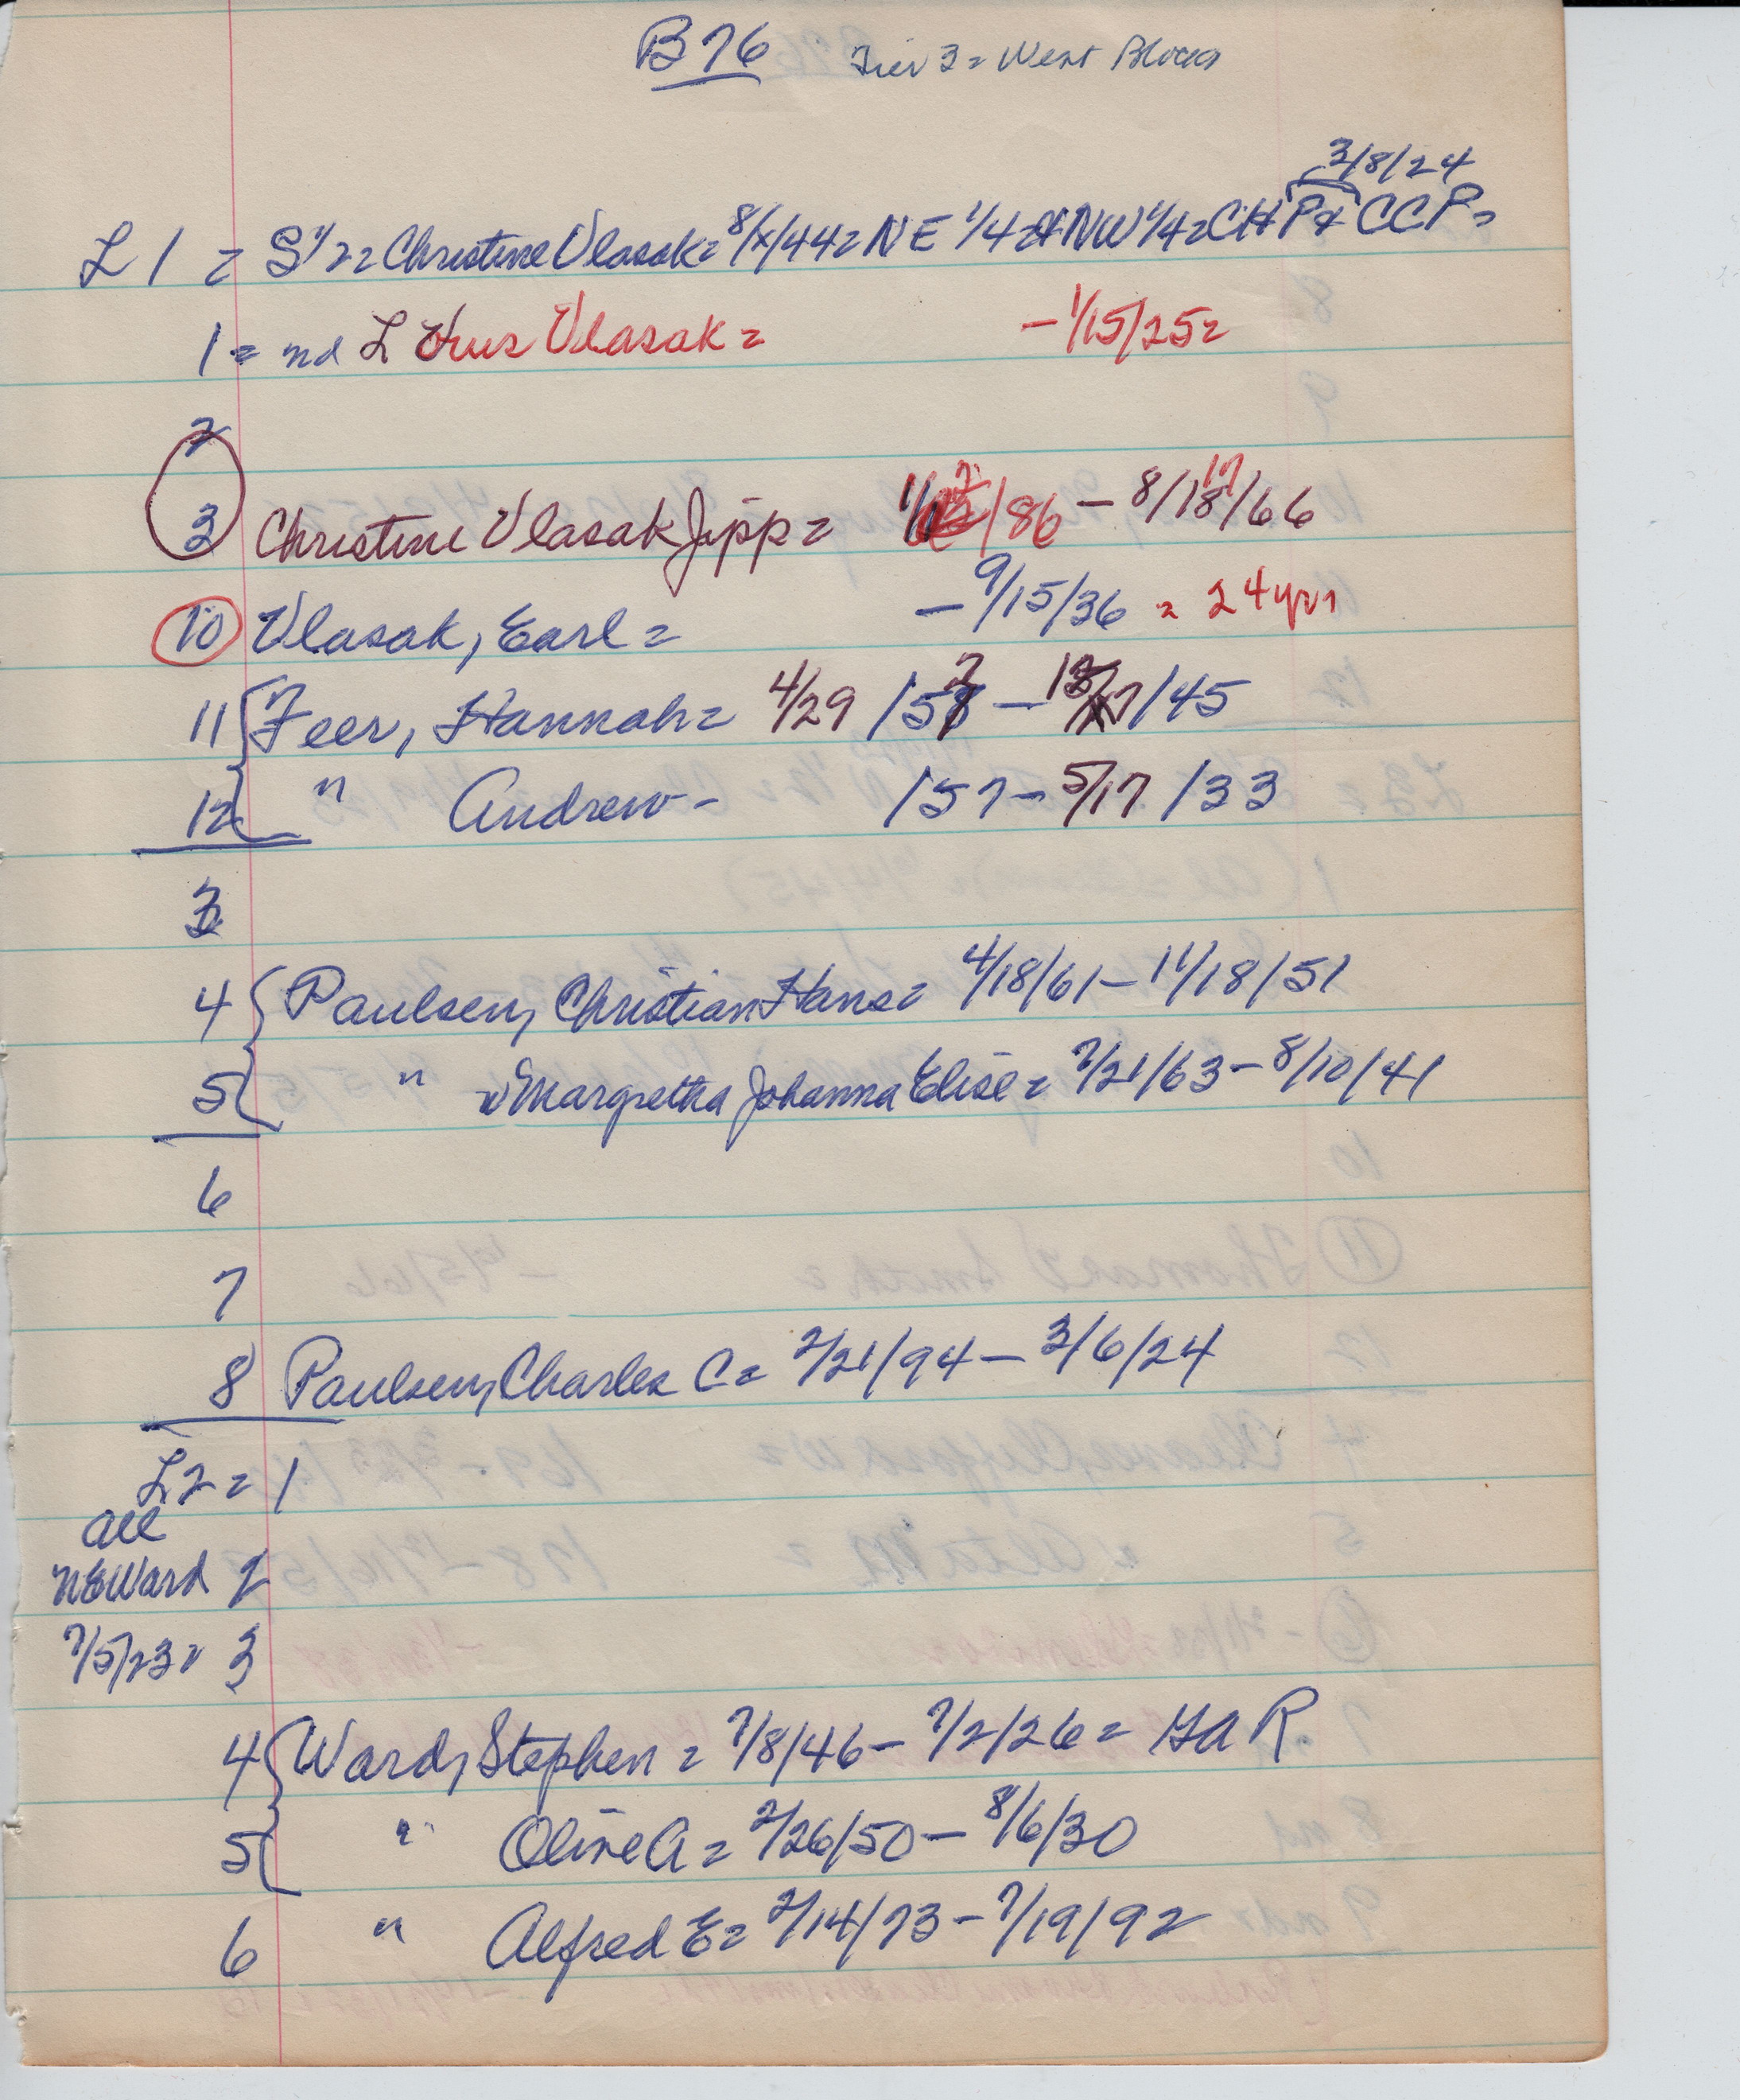 B76 Tier 3 = West Blocks
3/8/24
L 1 = S 1/2 = Christine Vlasak = 8/x/44 = NE 1/4 & NW 1/4 = CH P & CCP =
1 = nd L Vlasak = - 1/15/25 =
2
3 Christine Vlasak Jipp = /86 - 8/17/66
10 Vlasak, Earl = - 9/15/36 = 24 yrs
11 Feer, Hannah = 4/29 /57 - /45
12 " Andrew - /57 - 5/17 /33
3
4 Paulsen, Christian Hans = 4/18/61 - 11/18/51
5 " w Margretha Johanna Elise = 7/21/63 - 8/10/41
6
7
8 Paulsen, Charles C = 2/21/94 - 3/6/24
L 2 = 1
all
NE Ward 2
7/5/23 = 3
4 Ward, Stephen = 7/8/46 - 7/2/26 = GAR
5 " Oline A = 2/26/50 - 8/6/30
6 " Alfred E = 2/14/73 - 7/19/92